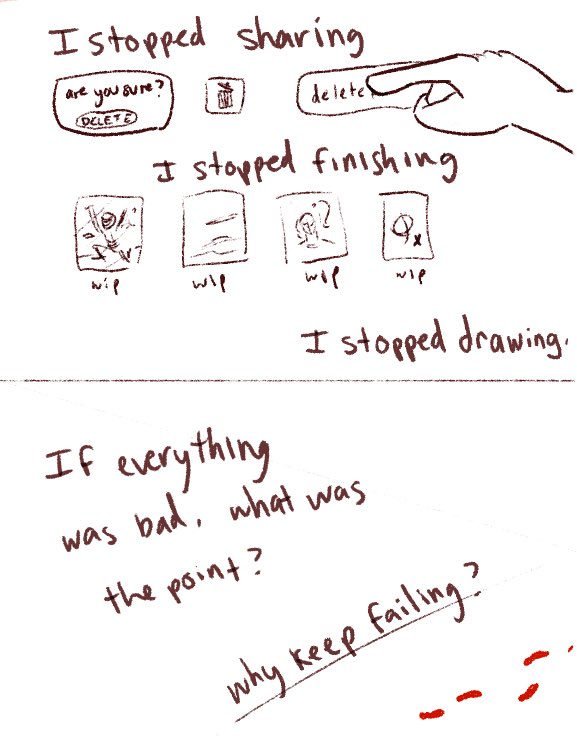 I stopped sharing
are you sure?
DELETE
delete
I stopped finishing
wip
wip
wip
wip
I stopped drawing.
If everything
was bad, what was
the point?
why keep failing?